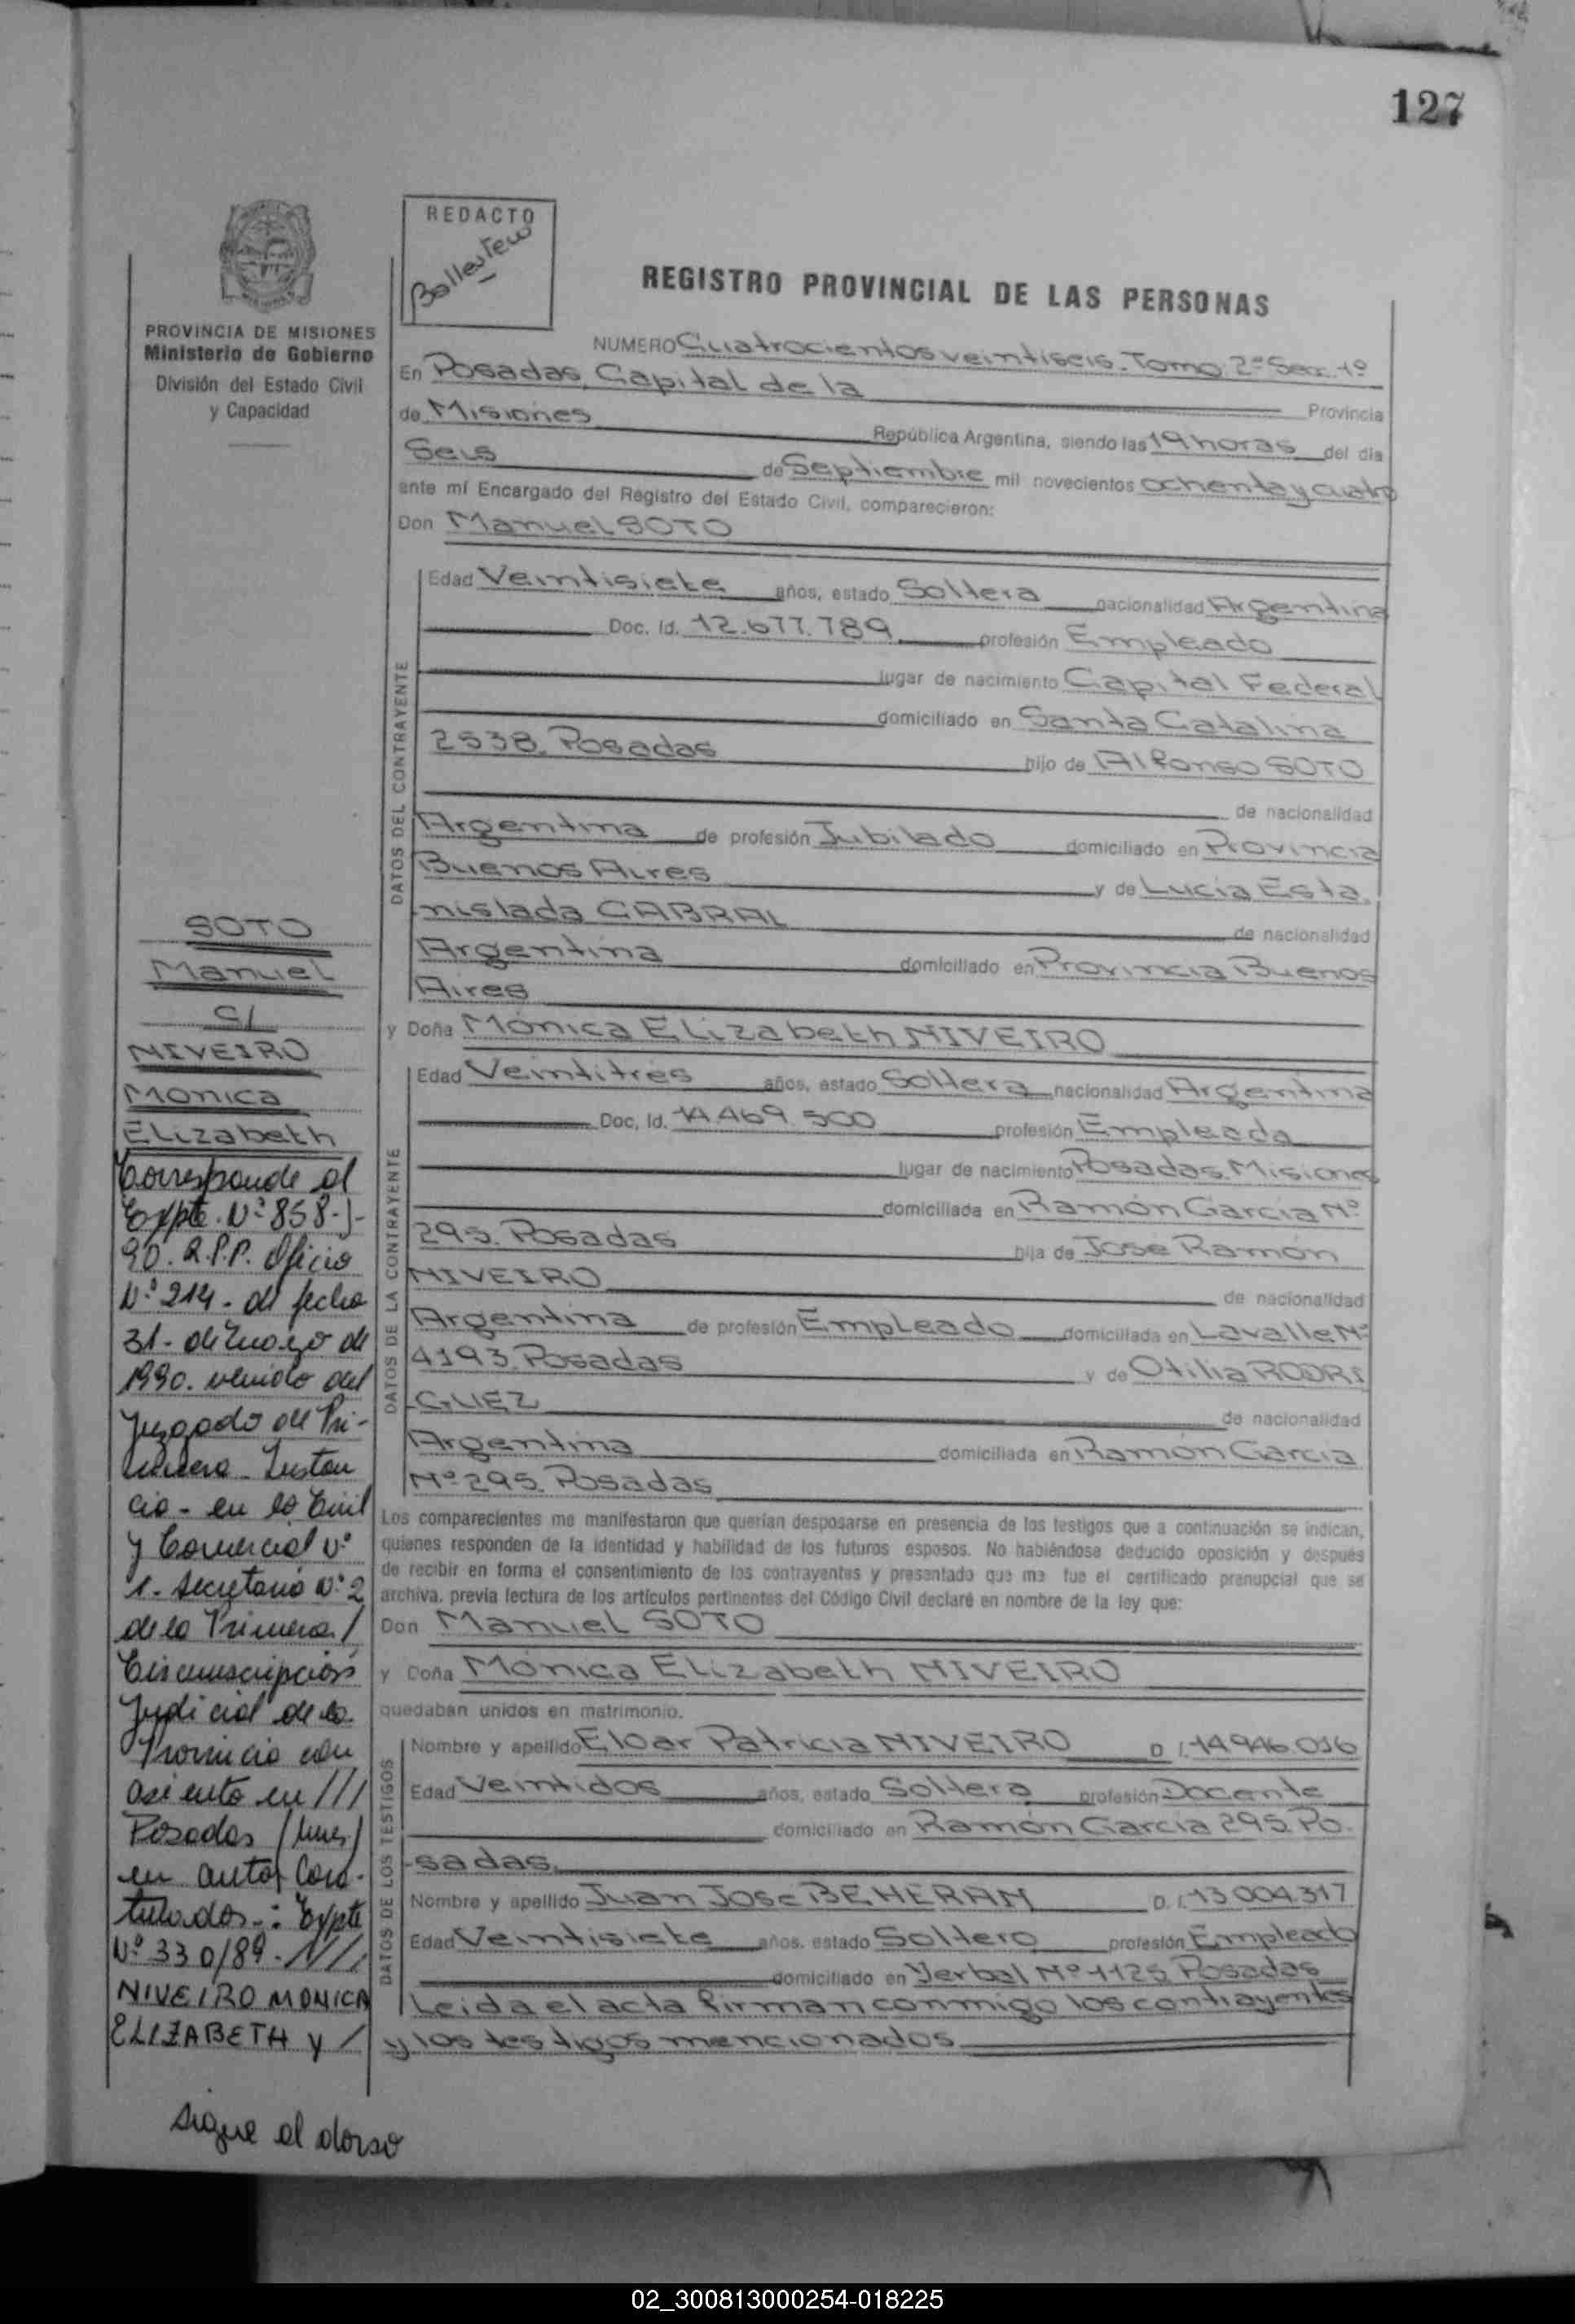 127
REDACTO
Ballestero
PROVINCIA DE MISIONES
Ministerio de Gobierno
División del Estado Civil
y Capacidad
REGISTRO PROVINCIAL DE LAS PERSONAS
NUMERO Cuatrocientos veintiseis. Tomo 2º Secc. 1º
En Posadas, Capital de la Provincia
de Misiones República Argentina, siendo las 19 horas del día
Seis de Septiembre mil novecientos ochenta y cuatro
ante mí Encargado del Registro del Estado Civil, comparecieron:
Don Manuel SOTO
DATOS DEL CONTRAYENTE
Edad Veintisiete años, estado Soltera nacionalidad Argentina
Doc. Id. 12.677.789 profesión Empleado
lugar de nacimiento Capital Federal
domiciliado en Santa Catalina
2538. Posadas hijo de Alfonso SOTO
de nacionalidad
Argentina de profesión Jubilado domiciliado en Provincia
Buenos Aires y de Lucia Esta
nislada CABRAL de nacionalidad
Argentina domiciliado en Provincia Buenos
Aires
y Doña Mónica Elizabeth NIVEIRO
DATOS DE LA CONTRAYENTE
Edad Veintitres años, estado Soltera nacionalidad Argentina
Doc. Id. 14.469.500 profesión Empleada
lugar de nacimiento Posadas. Misiones
domiciliada en Ramón García Nº
295. Posadas hija de Jose Ramón
NIVEIRO de nacionalidad
Argentina de profesión Empleado domiciliada en Lavalle Nº
4193. Posadas y de Otilia RODRI
GUEZ de nacionalidad
Argentina domiciliada en Ramón Garcia
Nº 295. Posadas
Los comparecientes me manifestaron que querían desposarse en presencia de los testigos que a continuación se indican,
quienes responden de la identidad y habilidad de los futuros esposos. No habiéndose deducido oposición y después
de recibir en forma el consentimiento de los contrayentes y presentado que me fue el certificado prenupcial que se
archiva. previa lectura de los artículos pertinentes del Código Civil declaré en nombre de la ley que:
Don Manuel SOTO
y Doña Mónica Elizabeth NIVEIRO
quedaban unidos en matrimonio.
DATOS DE LOS TESTIGOS
Nombre y apellido Eloar Patricia NIVEIRO D.I. 14.946.016
Edad Veintidos años, estado Soltera profesión Docente
domiciliado en Ramón García 295. Po
sadas.
Nombre y apellido Juan Jose BEHERAN D.I. 13.004.317
Edad Veintisiete años, estado Soltero profesión Empleado
domiciliado en Yerbal Nº 1125 Posadas
Leida el acta firman conmigo los contrayentes
y los testigos mencionados
SOTO
Manuel
C/
NIVEIRO
Monica
Elizabeth
Corresponde al
Expte. Nº 858-J-
90. R.P.P. Oficio
Nº 214- de fecha
31- de Marzo de
1990. venido del
Juzgado de Pri-
mera Instan
cia- en lo Civil
y Comercial Nº
1. Secretaria Nº 2
de la Primera/
Circunscripción
Judicial de la
Provincia con
asiento en ///
Posadas
en autos Cara-
tulados-: Expte
Nº 330/89- ///
NIVEIRO MONICA
ELIZABETH y /
sigue al dorso
02_300813000254-018225